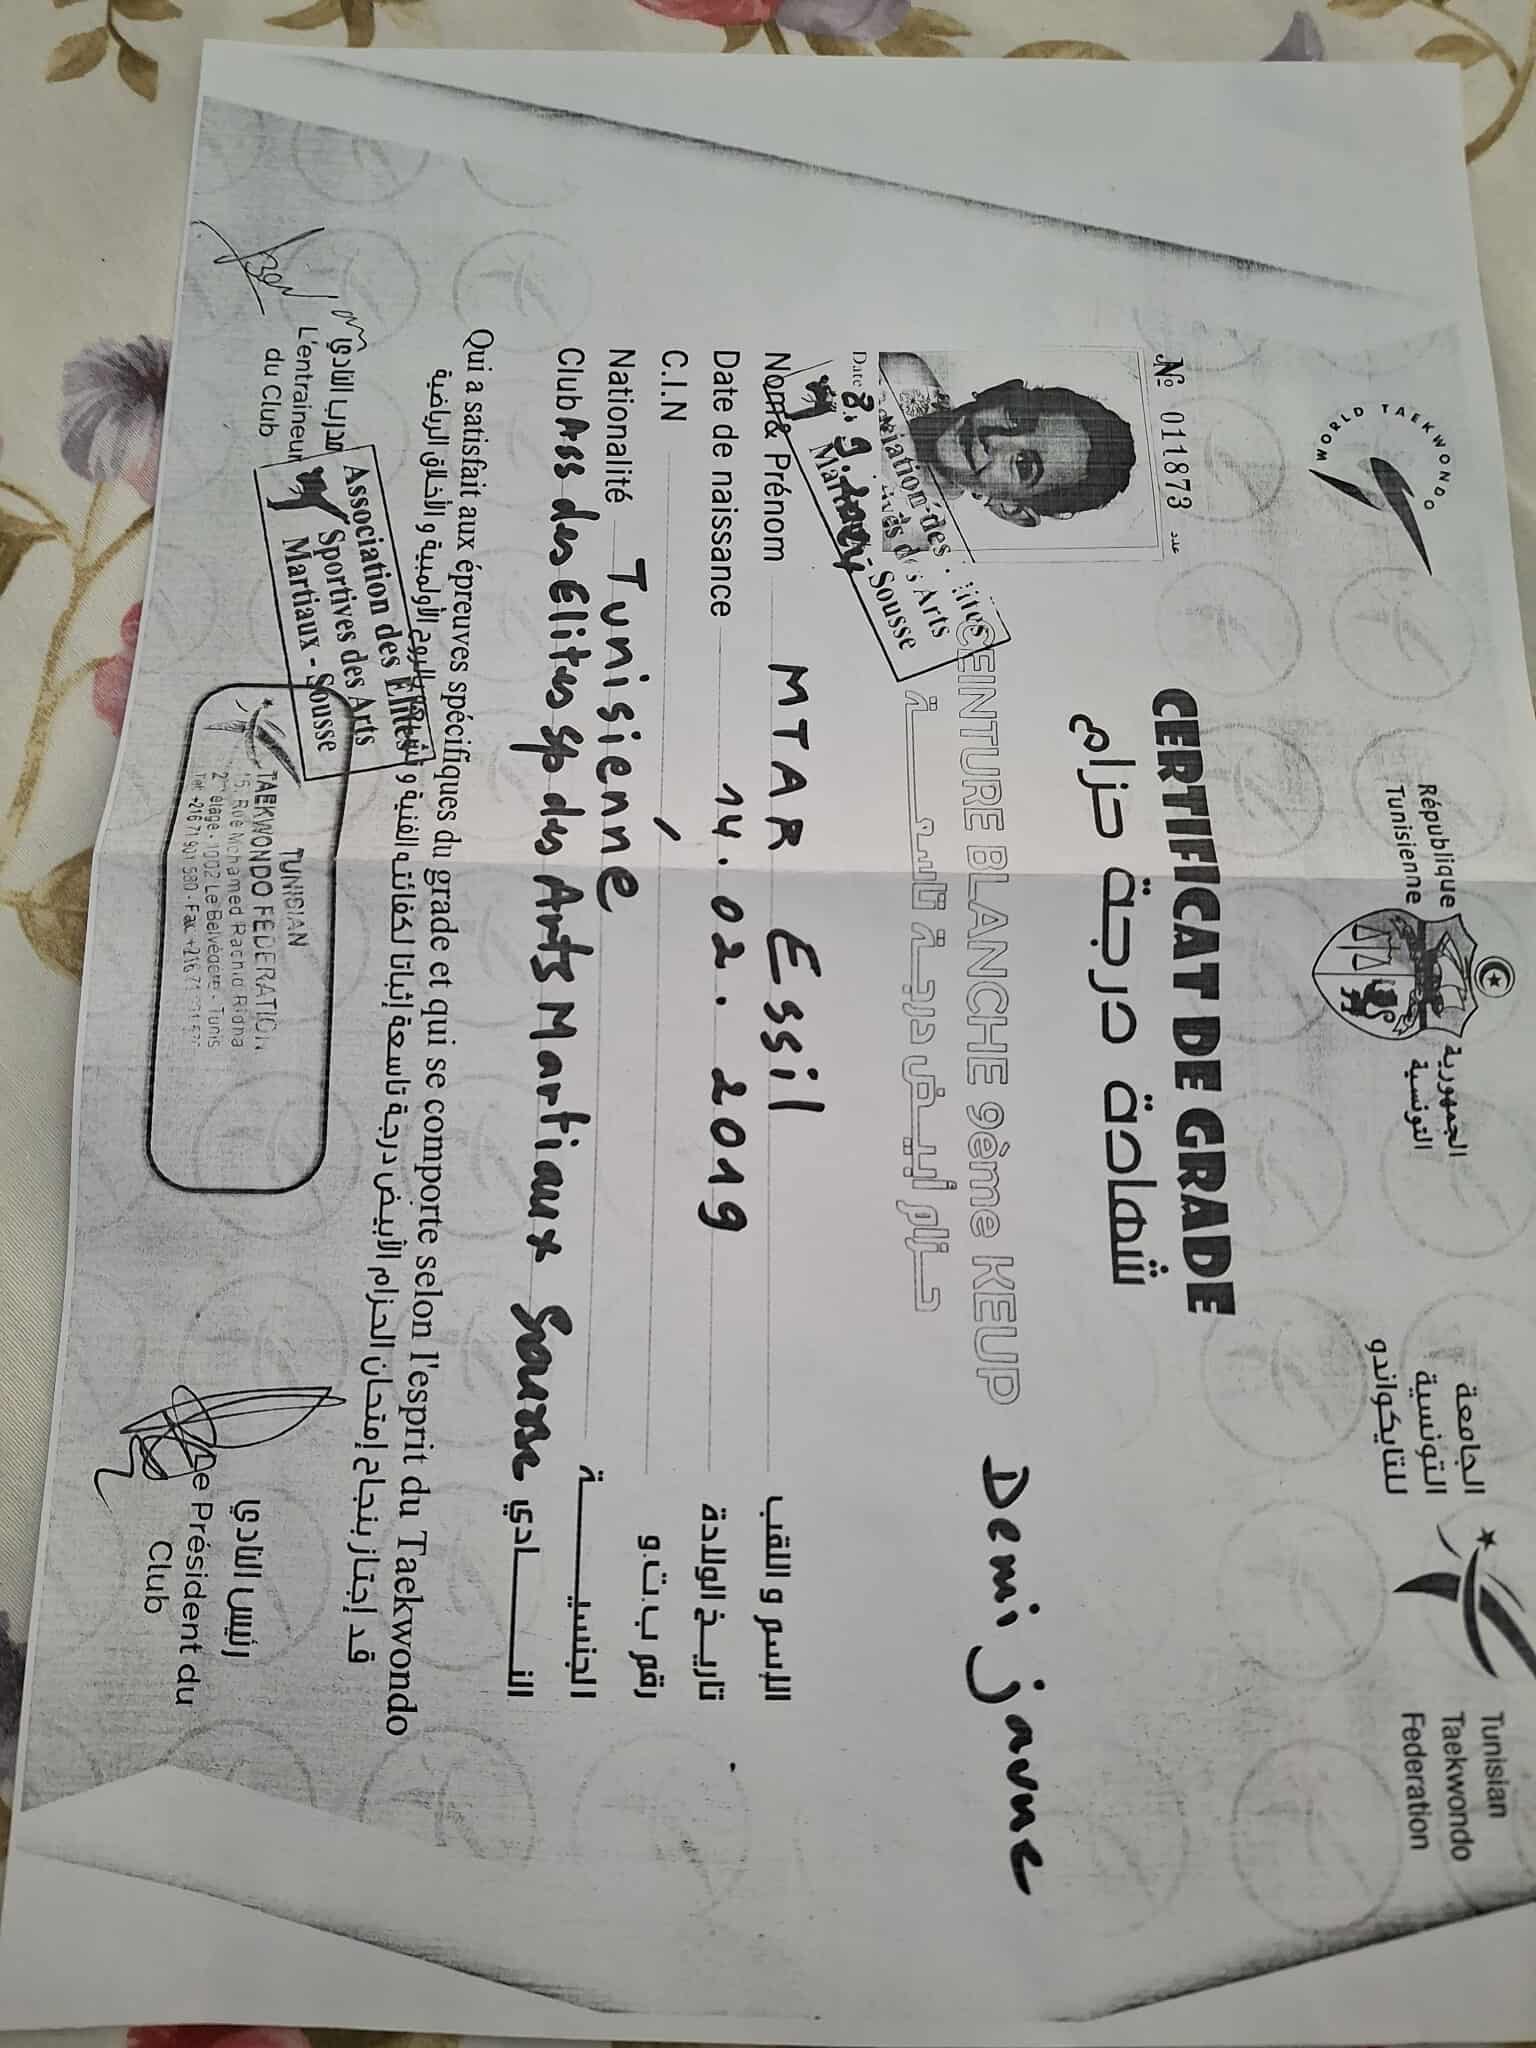 WORLD TAEKWONDO
République
Tunisienne
الجمهورية
التونسية
الجامعة
التونسية
للتايكواندو
Tunisian
Taekwondo
Federation
№ 011873 عدد
CERTIFICAT DE GRADE
شهادة درجة حزام
CEINTURE BLANCHE 9ème KEUP Demi jaune
حزام أبيض درجة تاسعة
Association des Elites
Sportives des Arts
Martiaux - Sousse
Date
Nom & Prénom MTAR Essil الإسم و اللقب
Date de naissance 14.02.2019 تاريخ الولادة
C.I.N / رقم ب.ت.و
Nationalité Tunisienne الجنسية
Club Ass des Elites sp des Arts Martiaux Sousse النادي
Qui a satisfait aux épreuves spécifiques du grade et qui se comporte selon l'esprit du Taekwondo
قد إجتاز بنجاح إمتحان الحزام الأبيض درجة تاسعة إثباتا لكفائته الفنية و الروح الأولمبية و الأخلاق الرياضية
مدرب النادي
L'entraineur
du Club
Association des Elites
Sportives des Arts
Martiaux - Sousse
TUNISIAN
TAEKWONDO FEDERATION
15, Rue Mohamed Rachid Ridha
2ème étage - 1002 Le Belvédère - Tunis
Tél: +216 71 901 580 - Fax: +216 71
رئيس النادي
Le Président du
Club